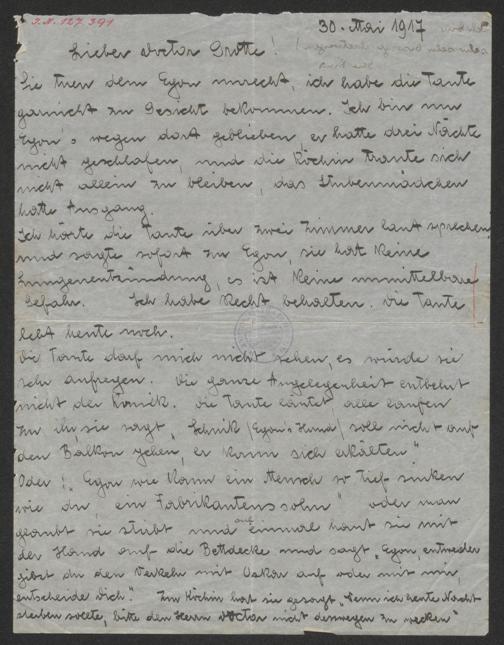 I.N. 127.391
30. Mai 1917
Lieber Doctor Grotte!
Sie tuen dem Egon unrecht, ich habe die Tante
garnicht zu Gesicht bekommen. Ich bin nur
Egon's wegen dort geblieben, er hatte drei Nächte
nicht geschlafen, und die Köchin traute sich
nicht allein zu bleiben, das Stubenmädchen
hatte Ausgang.
Ich hörte die Tante über zwei Zimmer laut sprechen
und sagte sofort zu Egon, sie hat keine
Lungenentzündung, es ist keine unmittelbare
Gefahr. Ich habe Recht behalten. Die Tante
lebt heute noch.
Die Tante darf mich nicht sehen, es würde sie
sehr aufregen. Die ganze Angelegenheit entbehrt
nicht der Komik. Die Tante läutet alle laufen
zu ihr, sie sagt „Schnik /Egon's Hund/ soll nicht auf
den Balkon gehen, er kann sich erkälten"
Oder! „Egon wie kann ein Mensch so tief sinken
wie du, ein Fabrikantenssohn" oder man
glaubt sie stirbt und auf einmal haut sie mit
der Hand auf die Bettdecke und sagt „Egon, entweder
gibst du den Verkehr mit Oskar auf oder mit mir,
entscheide dich". Zur Köchin hat sie gesagt „Wenn ich heute Nacht
sterben sollte, bitte den Herrn Doctor nicht deswegen zu wecken"